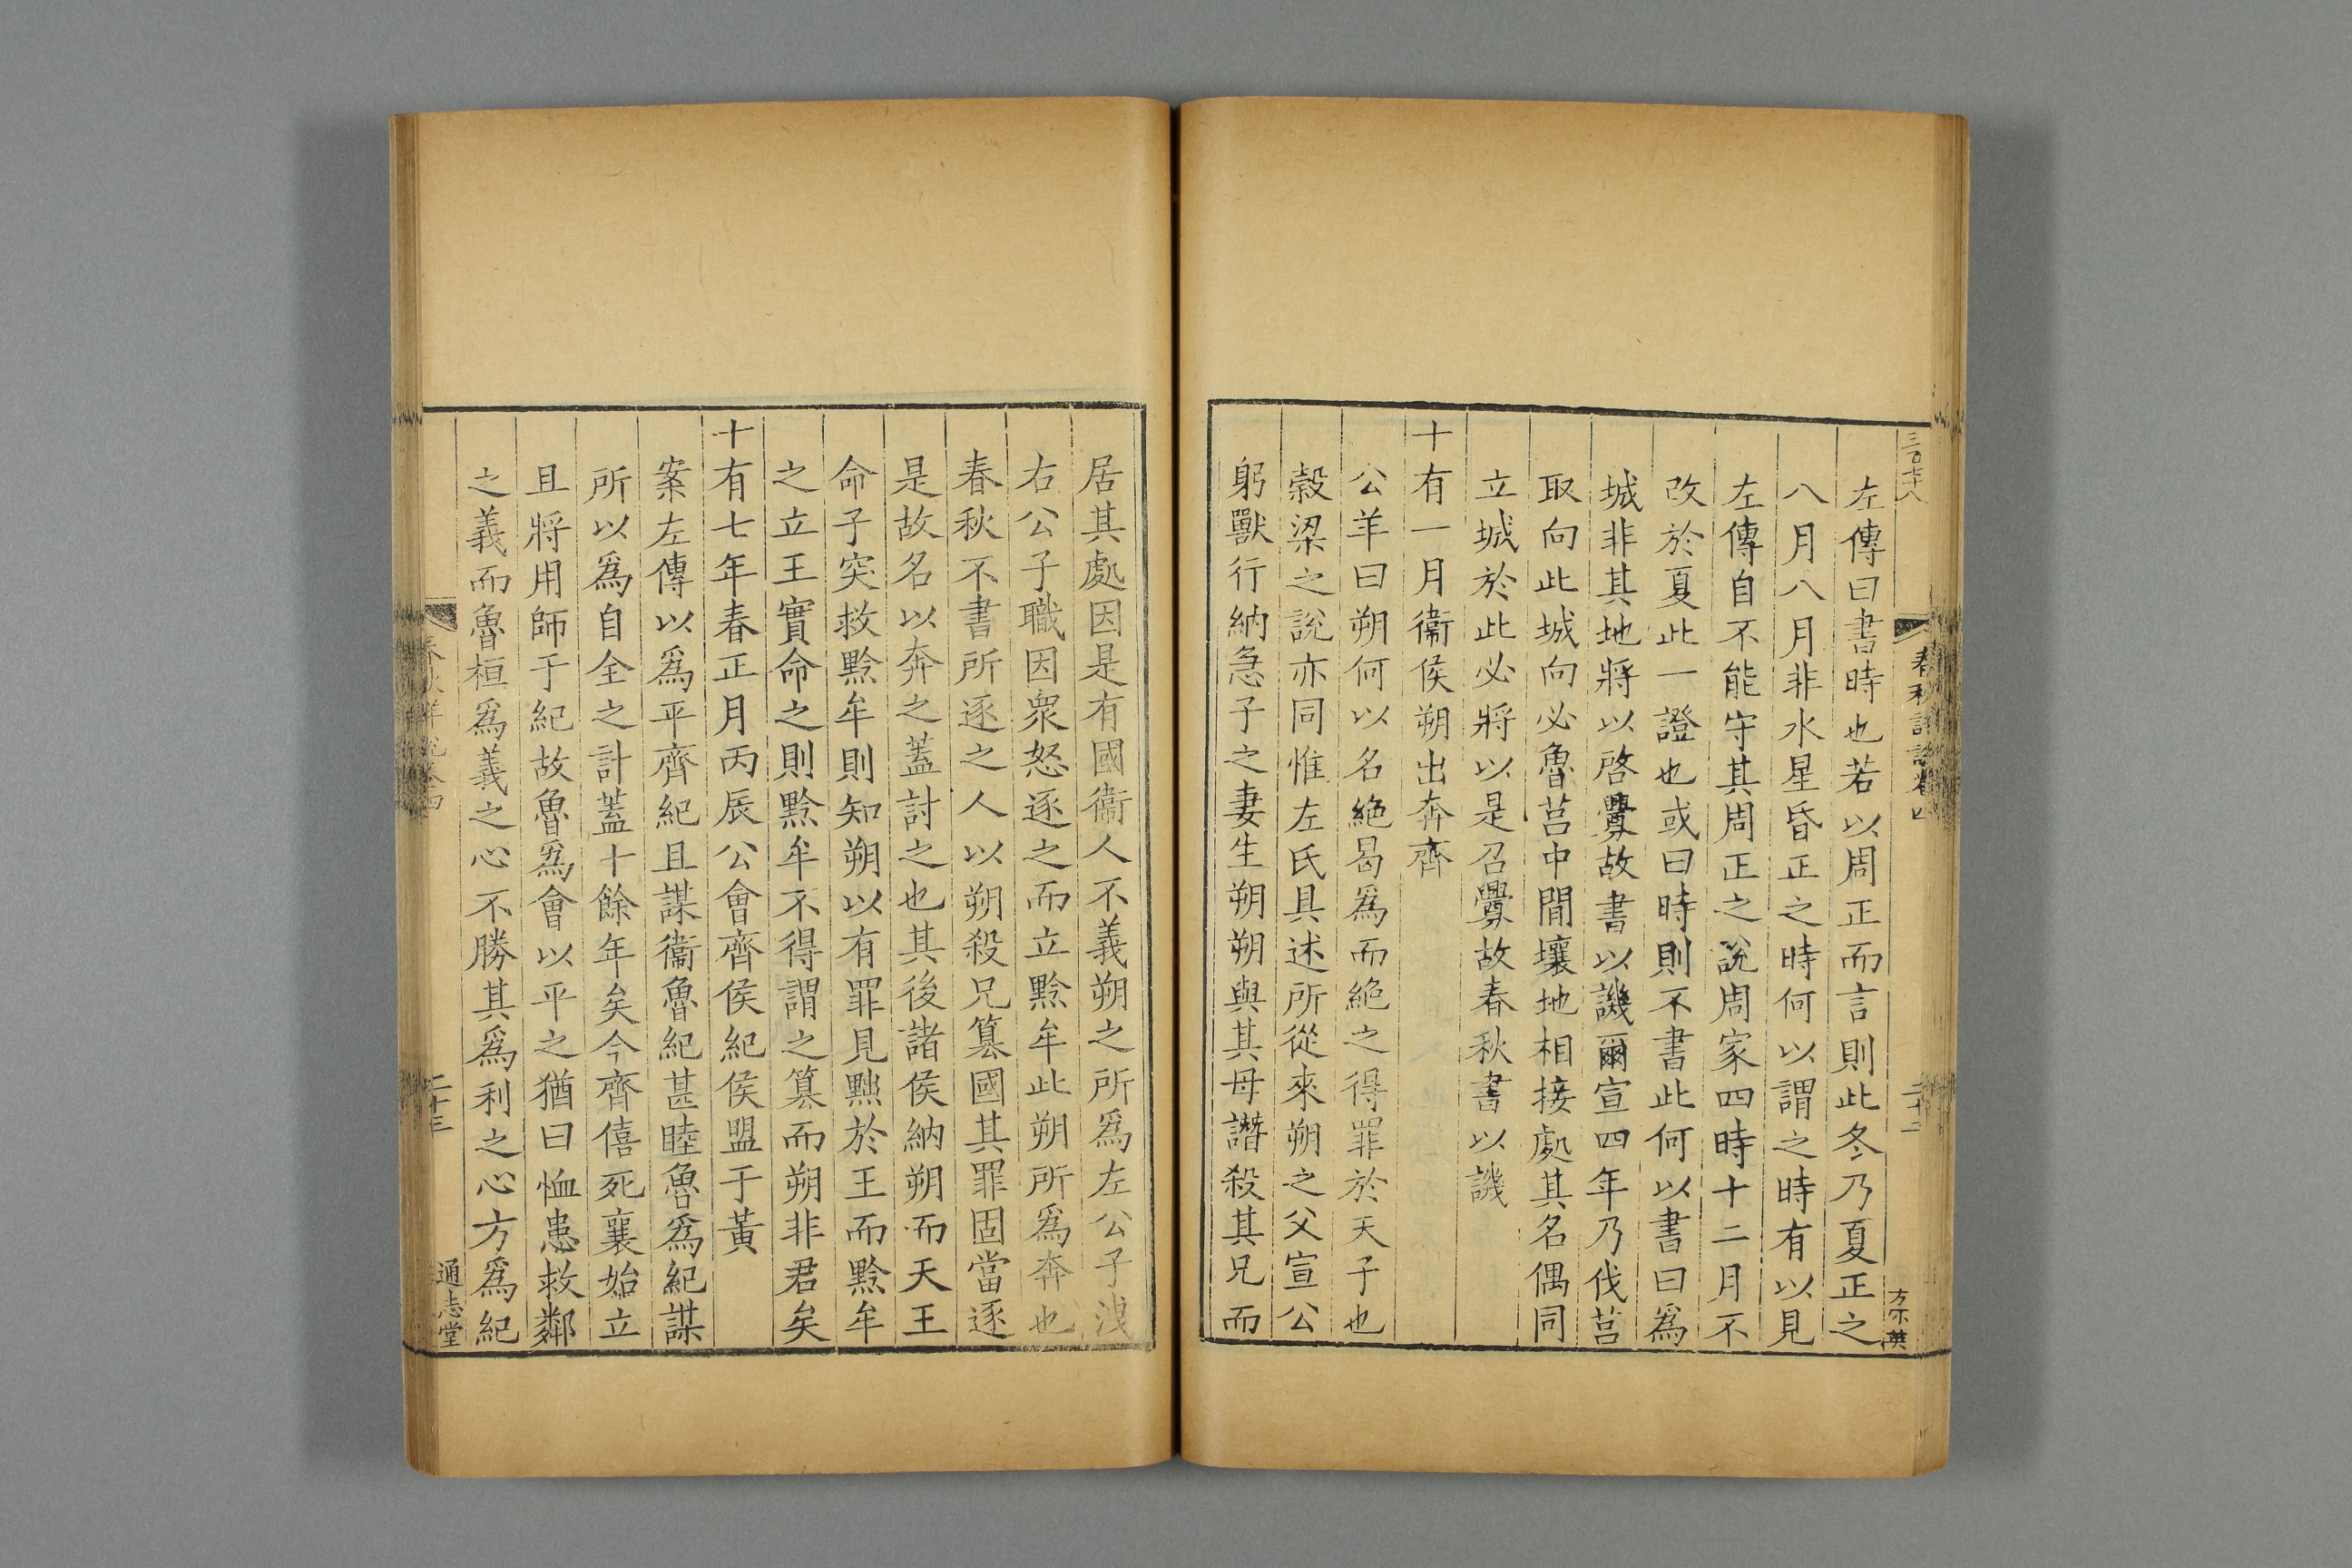 三百七十八
春秋詳說卷四
二十二
方宗英
左傳曰書時也若以周正而言則此冬乃夏正之
八月八月非水星昏正之時何以謂之時有以見
左傳自不能守其周正之說周家四時十二月不
改於夏此一證也或曰時則不書此何以書曰爲
城非其地將以啓釁故書以譏爾宣四年乃伐莒
取向此城向必魯莒中間壤地相接處其名偶同
立城於此必將以是召釁故春秋書以譏
十有一月衞侯朔出奔齊
公羊曰朔何以名絶曷爲而絶之得罪於天子也
榖梁之說亦同惟左氏具述所從來朔之父宣公
躬獸行納急子之妻生朔朔與其母譖殺其兄而
居其處因是有國衞人不義朔之所爲左公子洩
右公子職因衆怒逐之而立黔牟此朔所爲奔也
春秋不書所逐之人以朔殺兄篡國其罪固當逐
是故名以奔之蓋討之也其後諸侯納朔而天王
命子突救黔牟則知朔以有罪見黜於王而黔牟
之立王實命之則黔牟不得謂之篡而朔非君矣
十有七年春正月丙辰公會齊侯紀侯盟于黃
案左傳以爲平齊紀且謀衞魯紀甚睦魯爲紀謀
所以爲自全之計蓋十餘年矣今齊僖死襄始立
且將用師于紀故魯爲會以平之猶曰恤患救鄰
之義而魯桓爲義之心不勝其爲利之心方爲紀
春秋詳說卷四
二十三
通志堂